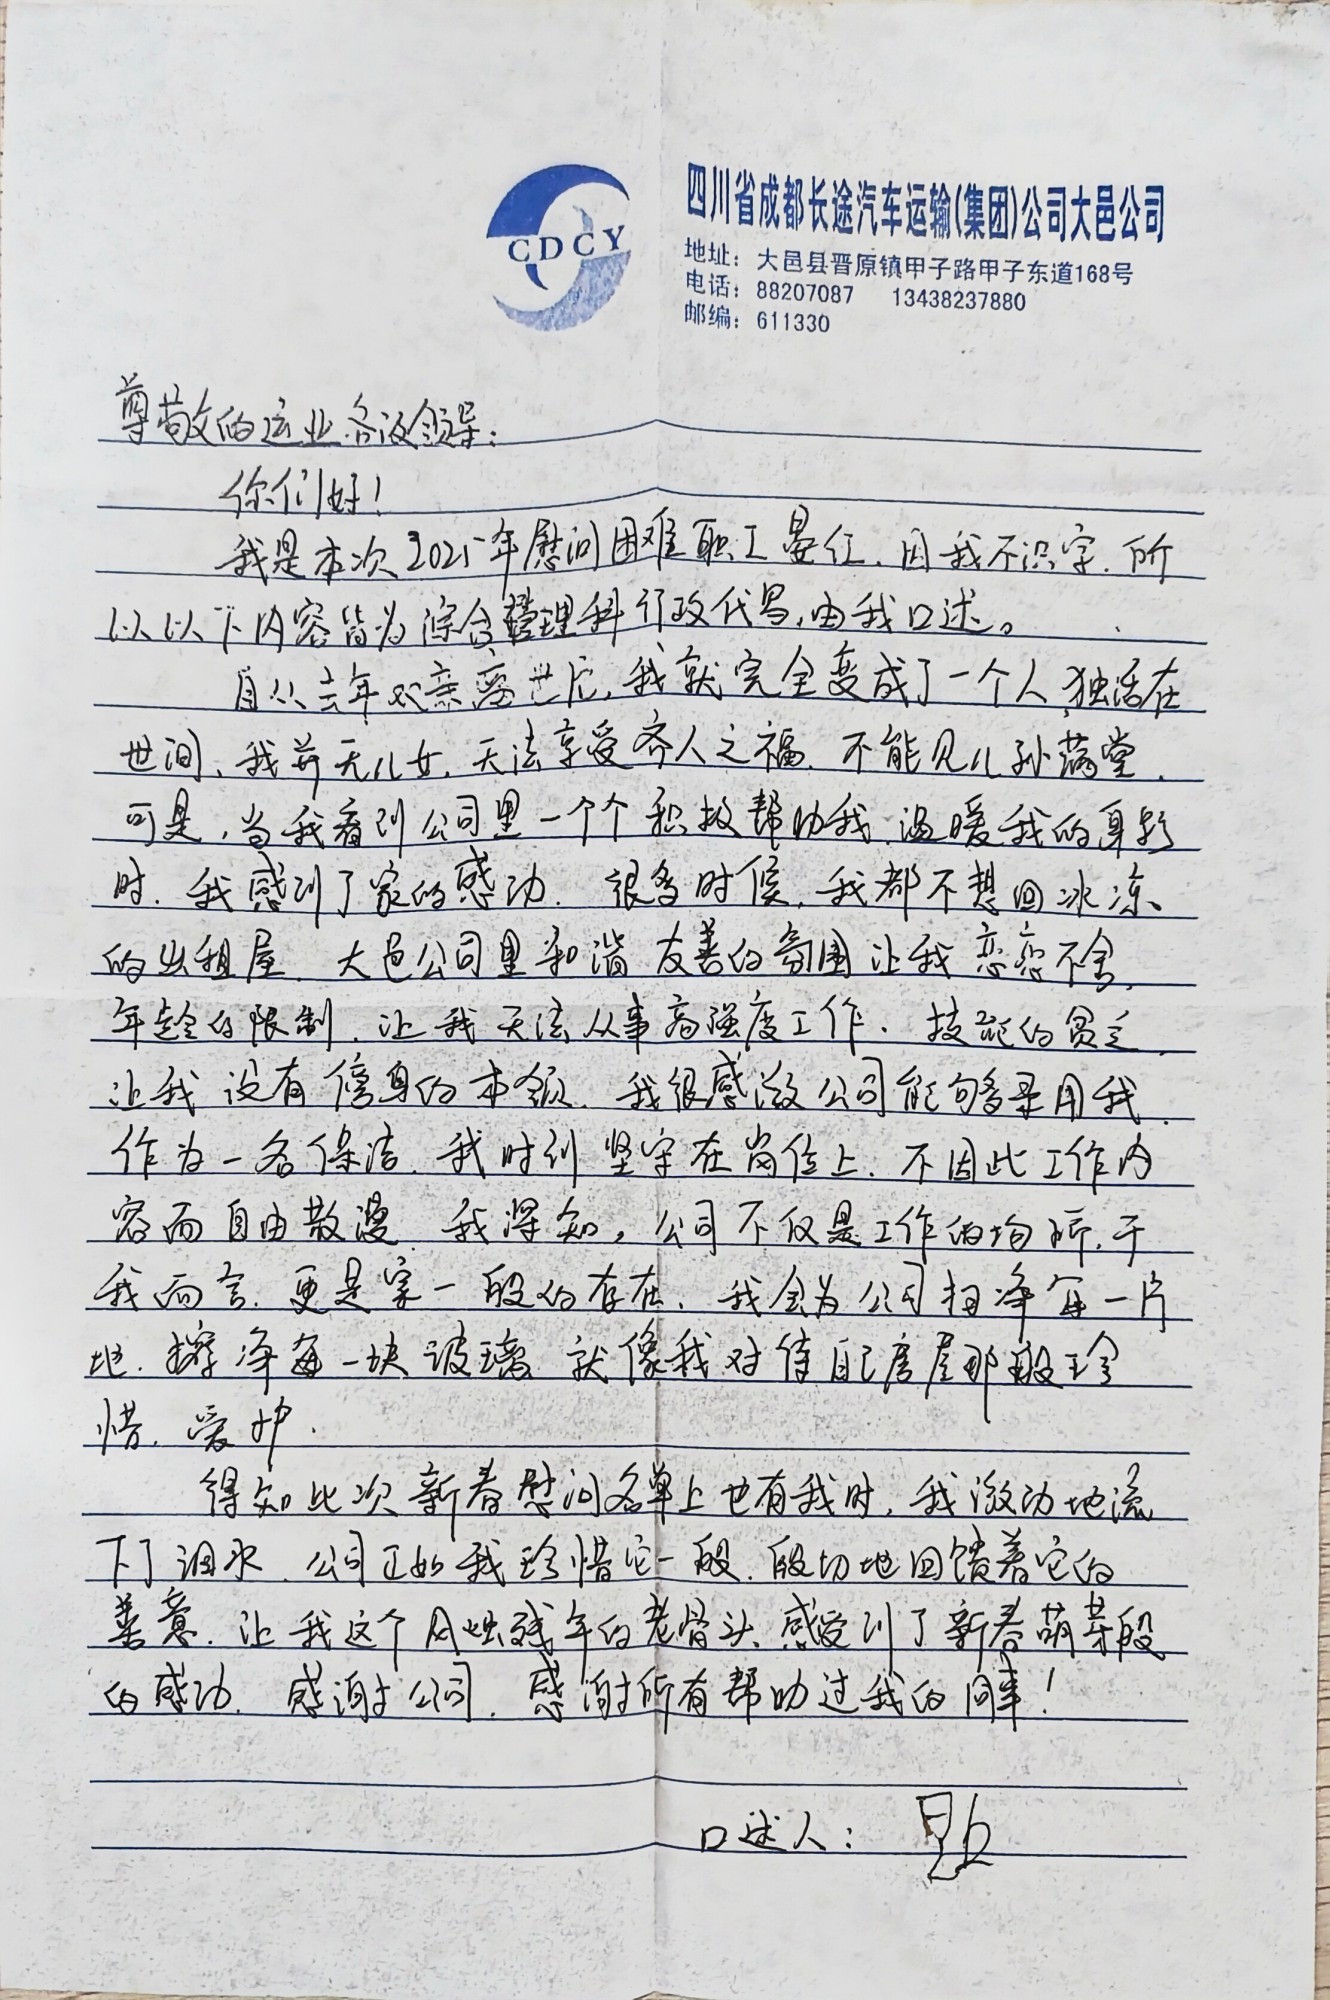 CDCY
四川省成都长途汽车运输(集团)公司大邑公司
地址：大邑县晋原镇甲子路甲子东道168号
电话：88207087 13438237880
邮编：611330
尊敬的运业各级领导：
你们好！
我是本次2025年慰问困难职工晏红，因我不识字，所
以以下内容皆为综合管理科行政代写，由我口述。
自从去年双亲离世后，我就完全变成了一个人独活在
世间，我并无儿女，无法享受齐人之福，不能见儿孙满堂，
可是，当我看到公司里一个个积极帮助我、温暖我的身影
时，我感到了家的感动，很多时候，我都不想回冰冻
的出租屋，大邑公司里和谐友善的氛围让我恋恋不舍，
年龄的限制，让我无法从事高强度工作，技能的贫乏，
让我没有傍身的本领，我很感激公司能够录用我，
作为一名保洁，我时刻坚守在岗位上，不因此工作内
容而自由散漫，我深知，公司不仅是工作的场所，于
我而言，更是家一般的存在，我会为公司扫净每一片
地，擦净每一块玻璃，就像我对待自己房屋那般珍
惜、爱护.
得知此次新春慰问名单上也有我时，我激动地流
下了泪水，公司正如我珍惜它一般，殷切地回馈着它的
善意，让我这个风烛残年的老骨头感受到了新春萌芽般
的感动，感谢公司，感谢所有帮助过我的同事！
口述人：